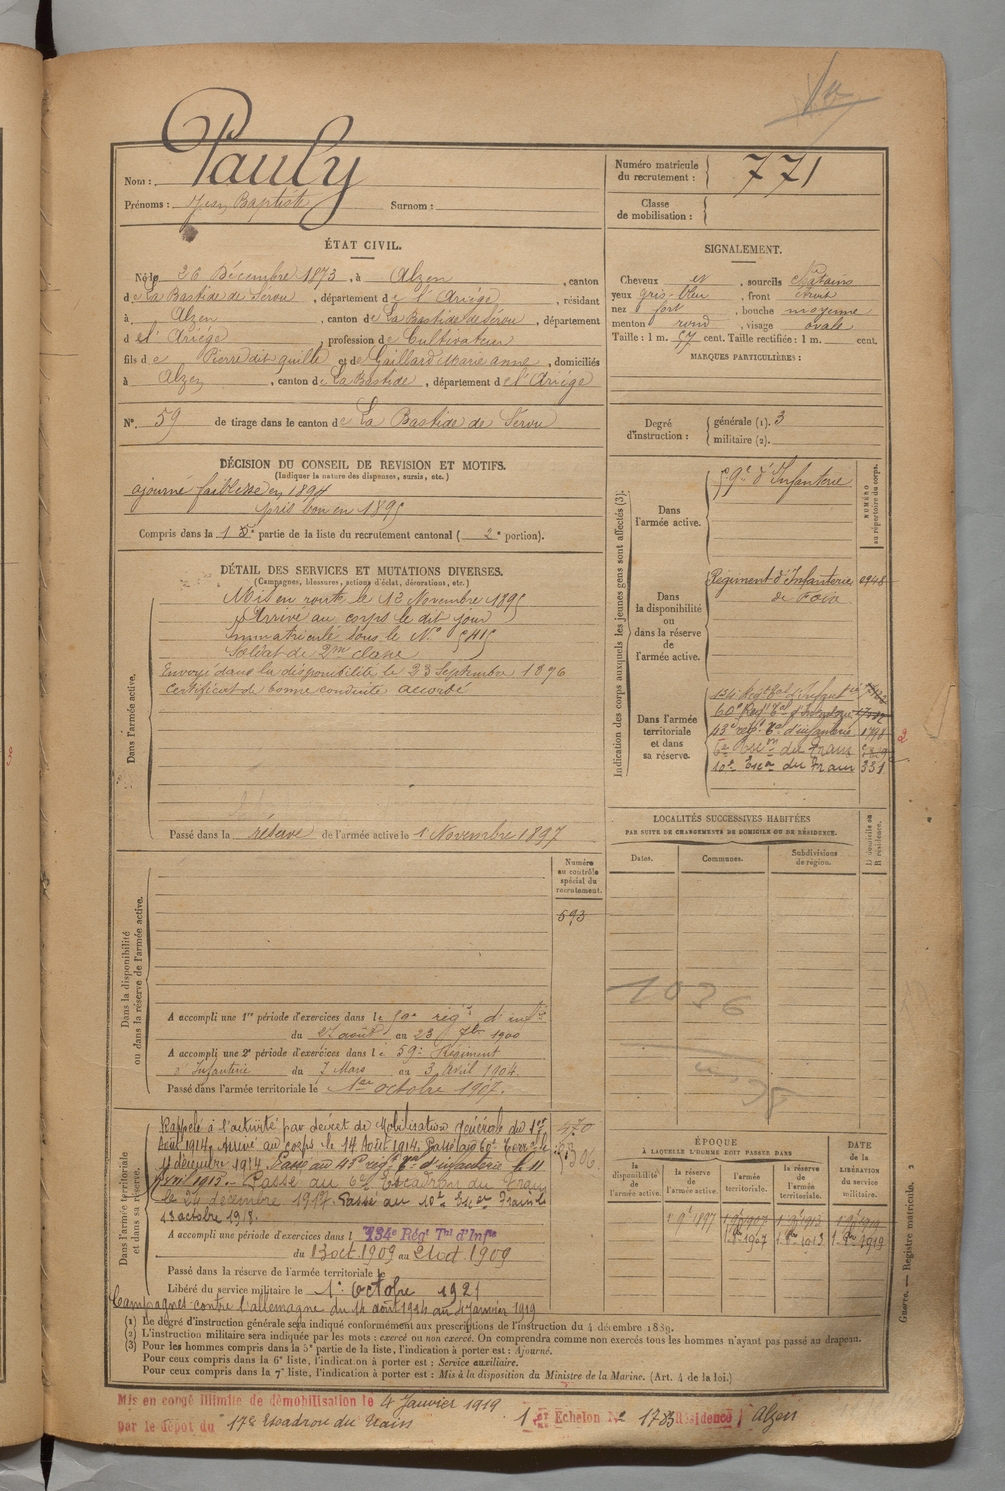 Pauly
Nom :
Prénoms : Jean Baptiste Surnom :
Numéro matricule du recrutement : 771
Classe de mobilisation :
ÉTAT CIVIL.
Né le 26 Décembre 1873, à Alzen, canton
de La Bastide de Sérou, département de l'Ariége, résidant
à Alzen, canton de La Bastide de Sérou, département
d el'Ariége, profession de Cultivateur
fils de Pierre dit quille et de Gaillard Marie Anne, domiciliés
à Alzen, canton de La Bastide, département de l'Ariége
N° 59 de tirage dans le canton de La Bastide de Sérou
SIGNALEMENT.
Cheveux et, sourcils châtains
yeux gris-bleu, front étroit
nez fort, bouche moyenne
menton rond, visage ovale
Taille : 1 m. 57 cent. Taille rectifiée : 1 m. cent.
MARQUES PARTICULIÈRES :
Degré d'instruction : générale (1). 3
militaire (2).
DÉCISION DU CONSEIL DE REVISION ET MOTIFS.
(Indiquer la nature des dispenses, sursis, etc.)
ajourné faiblesse en 1894
Pris bon en 1895
Compris dans la 1e partie de la liste du recrutement cantonal ( 2e portion).
DÉTAIL DES SERVICES ET MUTATIONS DIVERSES.
(Campagnes, blessures, actions d'éclat, décorations, etc.)
Dans l'armée active.
Mis en route le 12 Novembre 1895
Arrivé au corps le dit jour
Immatriculé sous le N° 5415
Soldat de 2me classe
Envoyé dans la disponibilité le 23 Septembre 1896
Certificat de bonne conduite accordé
Passé dans la réserve de l'armée active le 1 Novembre 1897
Indication des corps auxquels les jeunes gens sont affectés (3).
NUMÉRO au répertoire du corps.
Dans l'armée active.
59e d'Infanterie
Dans la disponibilité ou dans la réserve de l'armée active.
Régiment d'Infanterie 0948
de Foix
Dans l'armée territoriale et dans sa réserve.
134e Régt Tal d'Infanterie
60e Régt Tal d'Infanterie
43e régt Tal d'infanterie 1798
6e Escon du Train
10e Escon du Train 331
LOCALITÉS SUCCESSIVES HABITÉES
PAR SUITE DE CHANGEMENTS DE DOMICILE OU DE RÉSIDENCE.
Dates. Communes. Subdivisions de région. D domicile ou R résidence.
1036
Dans la disponibilité ou dans la réserve de l'armée active.
Numéro au contrôle spécial du recrutement.
593
A accompli une 1re période d'exercices dans le 59e régt d'infie
du 27 août au 23 7bre 1900
A accompli une 2e période d'exercices dans le 59e Régiment
d'Infanterie du 7 Mars au 3 Avril 1904.
Passé dans l'armée territoriale le 1er octobre 1907.
Dans l'armée territoriale et dans sa réserve.
Rappelé à l'activité par décret de Mobilisation Générale du 1er
Août 1914, Arrivé au corps le 14 Août 1914. Passé au 60e Terral le
11 décembre 1914. Passé au 43e régt Tal d'infanterie le 11
Avril 1915. Passé au 6e Escadron du Train
le 24 décembre 1917 Passé au 10e Escon Train le
13 octobre 1918.
A accompli une période d'exercices dans l 134e Régt Tal d'Infie
du 13 oct. 1909 au 21 oct 1909
Passé dans la réserve de l'armée territoriale le
Libéré du service militaire le 1er Octobre 1921
Campagnes contre l'allemagne du 14 août 1914 au 4 Janvier 1919
ÉPOQUE
À LAQUELLE L'HOMME DOIT PASSER DANS
la disponibilité de l'armée active. la réserve de l'armée active. l'armée territoriale. la réserve de l'armée territoriale.
DATE DE LA LIBÉRATION du service militaire.
1 9e 1897 1 9e 1907 1 9e 1913 1 9e 1919
1 8re 1907 1 8re 1913 1 8re 1919
(1) Le degré d'instruction générale sera indiqué conformément aux prescriptions de l'instruction du 4 décembre 1889.
(2) L'instruction militaire sera indiquée par les mots : exercé ou non exercé. On comprendra comme non exercés tous les hommes n'ayant pas passé au drapeau.
(3) Pour les hommes compris dans la 5e partie de la liste, l'indication à porter est : Ajourné.
Pour ceux compris dans la 6e liste, l'indication à porter est : Service auxiliaire.
Pour ceux compris dans la 7e liste, l'indication à porter est : Mis à la disposition du Ministre de la Marine. (Art. 4 de la loi.)
Guerre. — Registre matricule. 2
Mis en congé illimité de démobilisation le 4 Janvier 1919
par le dépôt du 17e Escadron du Train 1er Echelon N° 1783 Résidence Alzen